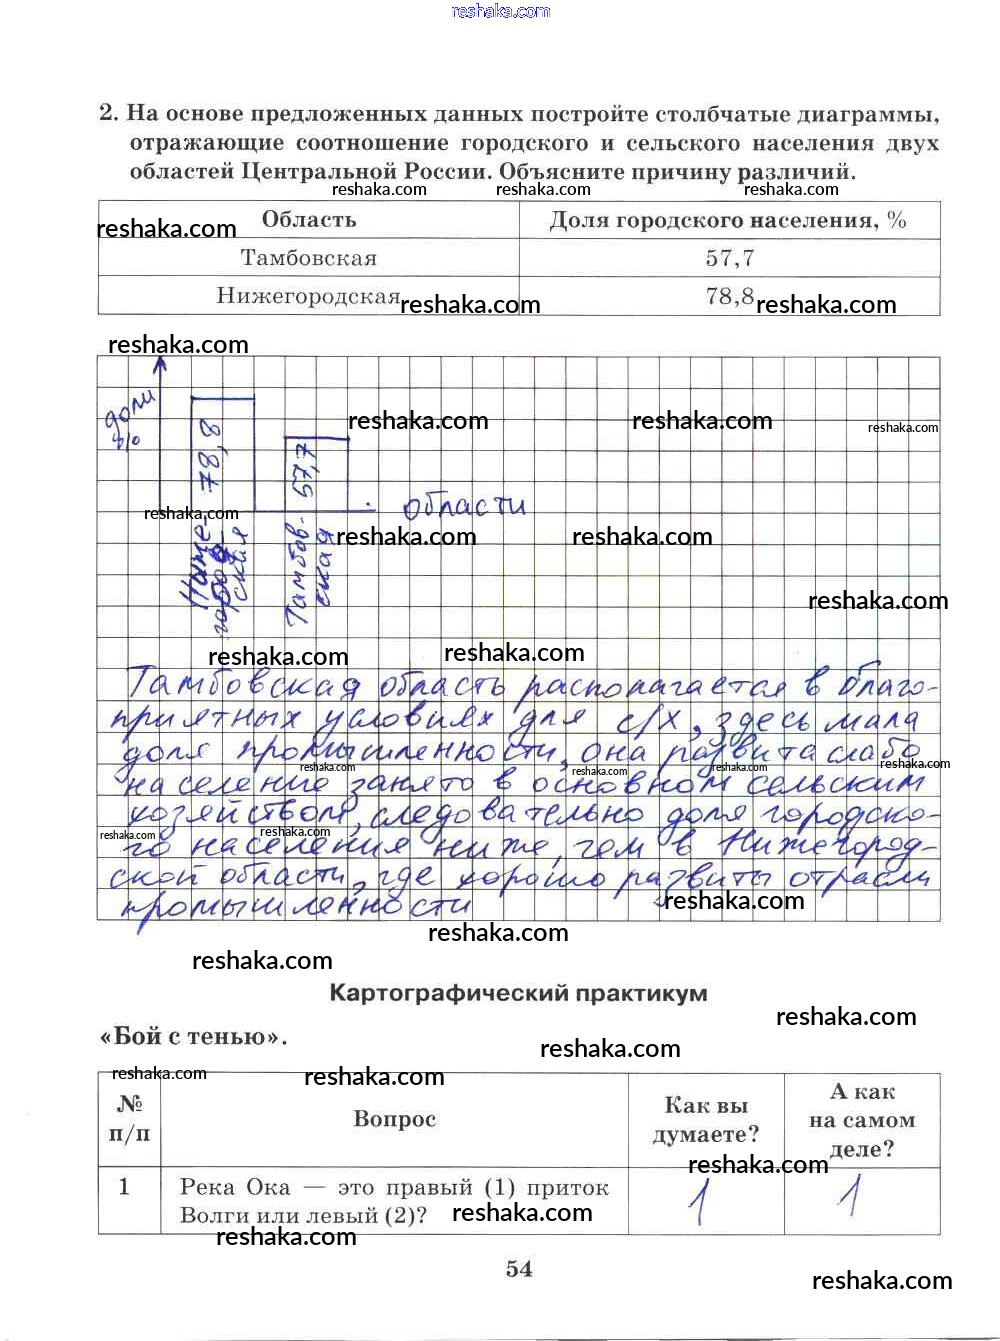 reshaka.com
2. На основе предложенных данных постройте столбчатые диаграммы,
отражающие соотношение городского и сельского населения двух
областей Центральной России. Объясните причину различий.
reshaka.com reshaka.com
Область Доля городского населения, %
reshaka.com
Тамбовская 57,7
Нижегородская 78,8
reshaka.com reshaka.com
reshaka.com
доли
%
78,8
57,7
reshaka.com reshaka.com reshaka.com
области
reshaka.com
Ниже-
город-
ская
Тамбов-
ская
reshaka.com reshaka.com
reshaka.com
reshaka.com reshaka.com
Тамбовская область располагается в благо-
приятных условиях для с/х, здесь мала
доля промышленности, она развита слабо
reshaka.com reshaka.com reshaka.com reshaka.com
население занято в основном сельским
хозяйством, следовательно доля городско-
reshaka.com reshaka.com
го населения ниже, чем в Нижегород-
ской области, где хорошо развиты отрасли
reshaka.com
промышленности
reshaka.com
reshaka.com
Картографический практикум
reshaka.com
«Бой с тенью».
reshaka.com
reshaka.com reshaka.com
№ п/п Вопрос Как вы думаете? А как на самом деле?
reshaka.com
1 Река Ока — это правый (1) приток 1 1
Волги или левый (2)?
reshaka.com
reshaka.com
54
reshaka.com